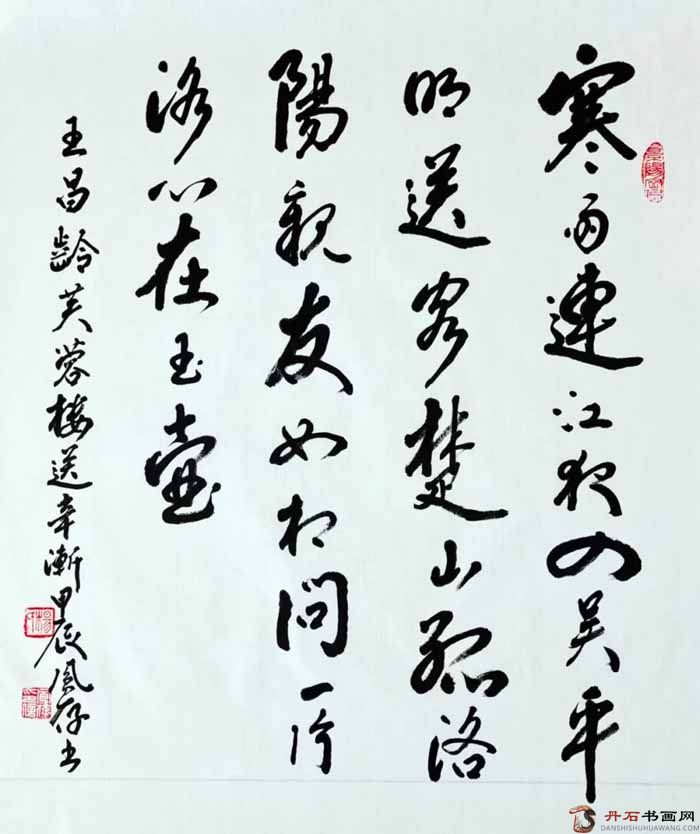 寒雨連江夜入吳平
明送客楚山孤洛
陽親友如相問一片
冰心在玉壺
王昌齡芙蓉樓送辛漸甲辰風存书
丹石书画网
DANSHISHUHUAWANG.COM